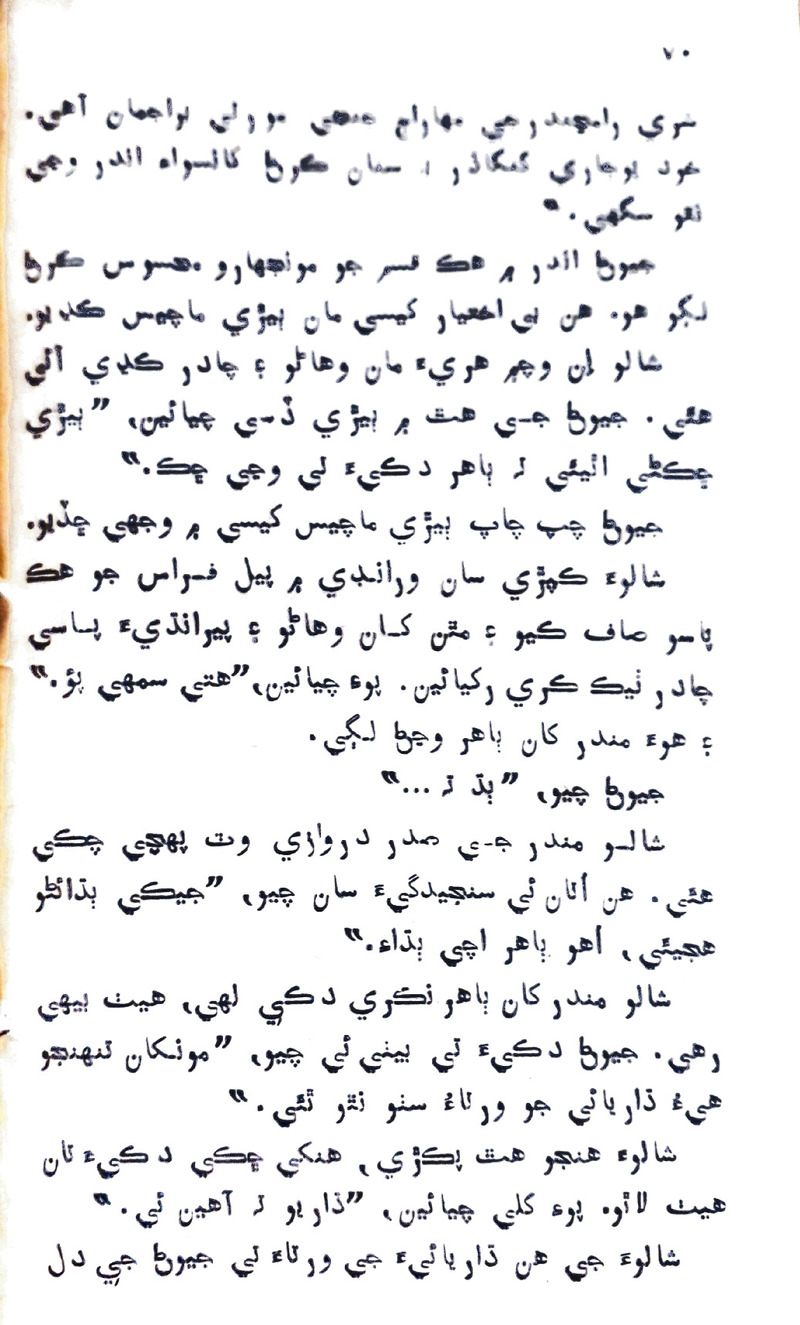 ٧٠
شري رامچندر جي مهاراج جنھي مورتي براجمان آهي.
خود پوجاري گنگاڌر ۽ سمان ڪرڻ کانسواءِ اندر وڃي
نٿو سگهي.“
جيوڻ اندر ۾ هڪ قسم جو مونجهارو محسوس ڪرڻ
لڳو هو. هن بي اختيار کيسي مان ٻيڙي ماچيس ڪڍيو.
شالو اِن وچ۾ هريءَ مان وهاڻو ۽ چادر ڪڍي آئي
هئي. جيوڻ جي هٿ ۾ ٻيڙي ڏسي چيائين، ”ٻيڙي
ڇڪڻي اٿيئي تہ ٻاهر دڪيءَ تي وڃي ڇڪ.“
جيوڻ چپ چاپ ٻيڙي ماچيس کيسي ۾ وجهي ڇڏيو.
شالوءَ ڪپڙي سان ورانڊي ۾ پيل فراس جو هڪ
پاسو صاف ڪيو ۽ مٿن کان وهاڻو ۽ پيرانڌيءَ پاسي
چادر ٺيڪ ڪري رکيائين. پوءِ چيائين، ”هتي سمهي پؤ.“
۽ هوءَ مندر کان ٻاهر وڃڻ لڳي.
جيوڻ چيو، ”ٻڌ تہ ...“
شالو مندر جي صدر دروازي وٽ پهچي چڪي
هئي. هن اُتان ئي سنجيدگيءَ سان چيو، ”جيڪي ٻڌائڻو
هجيئي، اُهو ٻاهر اچي ٻڌاءِ.“
شالو مندر کان ٻاهر نڪري دڪي لهي، هيٺ بيهي
رهي. جيوڻ دڪيءَ تي بيٺي ئي چيو، ”مونکان تنهنجو
هيءُ ڌاريائي جو ورتاءُ سٺو نٿر ٿئي.“
شالوءَ هنجو هٿ پڪڙي، هنکي ڇڪي دڪيءَ تان
هيٺ لاٿو. پوءِ کلي چيائين، ”ڌاريو تہ آهين ئي.“
شالوءَ جي هن ڌاريائيءَ جي ورتاءَ تي جيوڻ جي دل